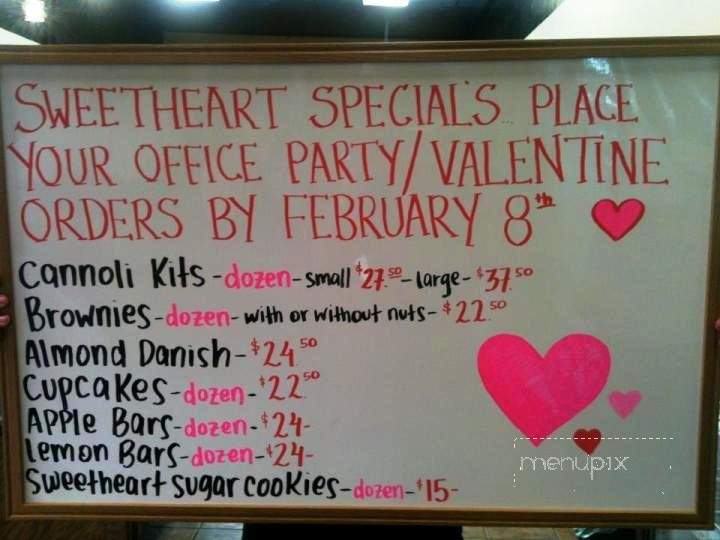 SWEETHEART SPECIAL'S PLACE
YOUR OFFICE PARTY/VALENTINE
ORDERS BY FEBRUARY 8th
Cannoli Kits - dozen - small $27.50 - large - $37.50
Brownies - dozen - with or without nuts - $22.50
Almond Danish - $24.50
Cupcakes - dozen - $22.50
Apple Bars - dozen - $24-
Lemon Bars - dozen - $24-
Sweetheart sugar cookies - dozen - $15-
menupix